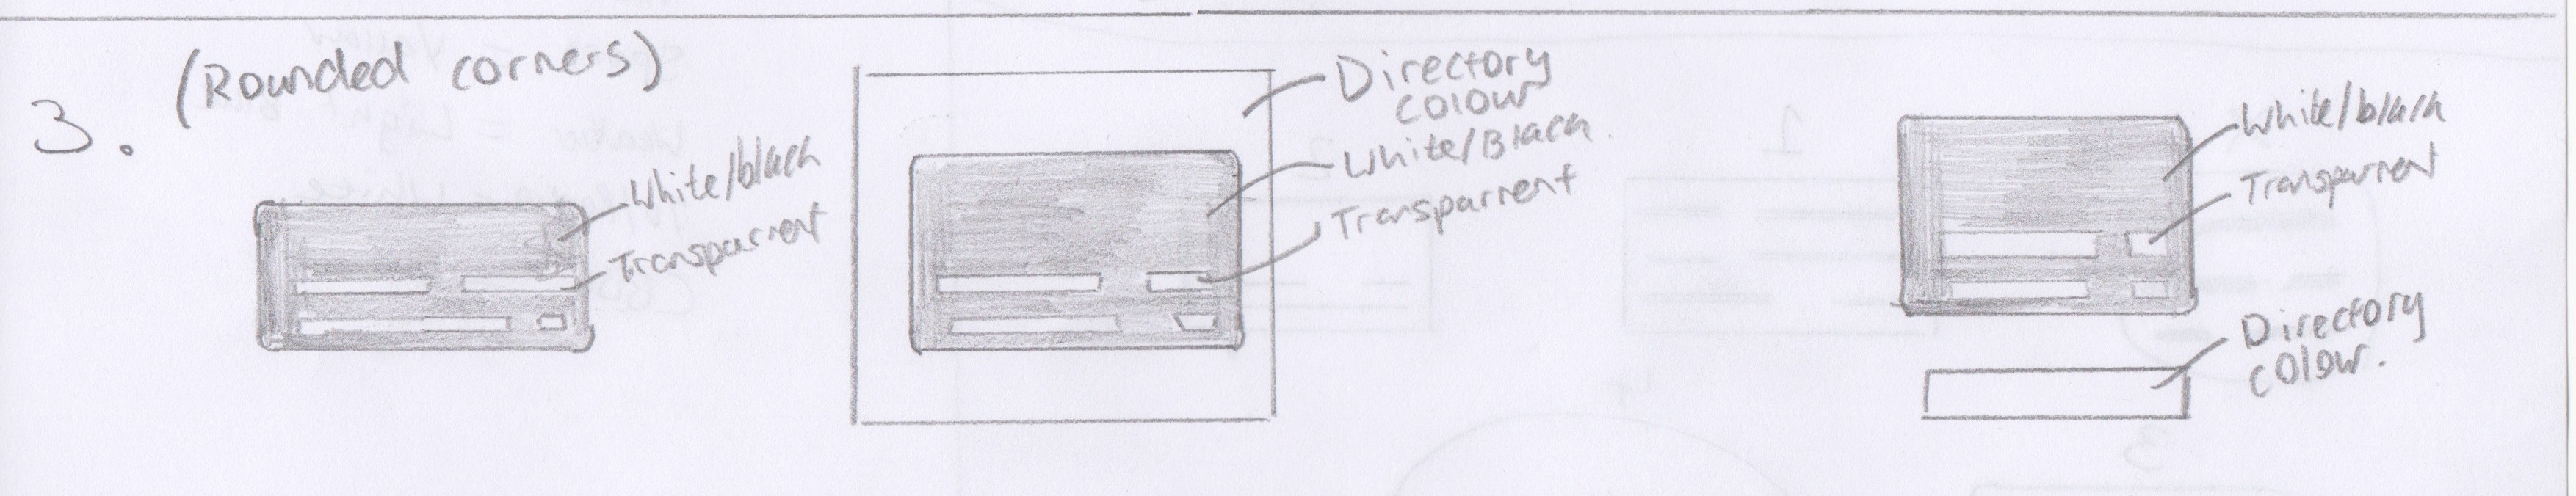 3. (Rounded corners)
White/black
Transparrent
Directory
colour
White/Black.
Transparrent
White/black
Transparrent
Directory
colour.